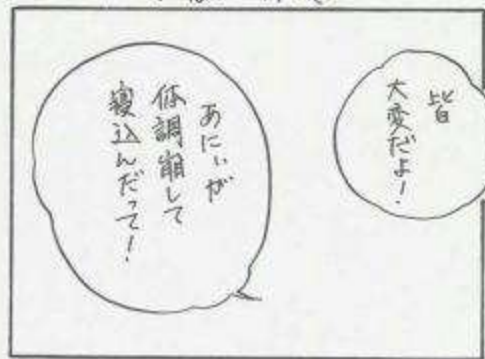 皆
大変だよ！
あにぃが
体調崩して
寝込んだって！